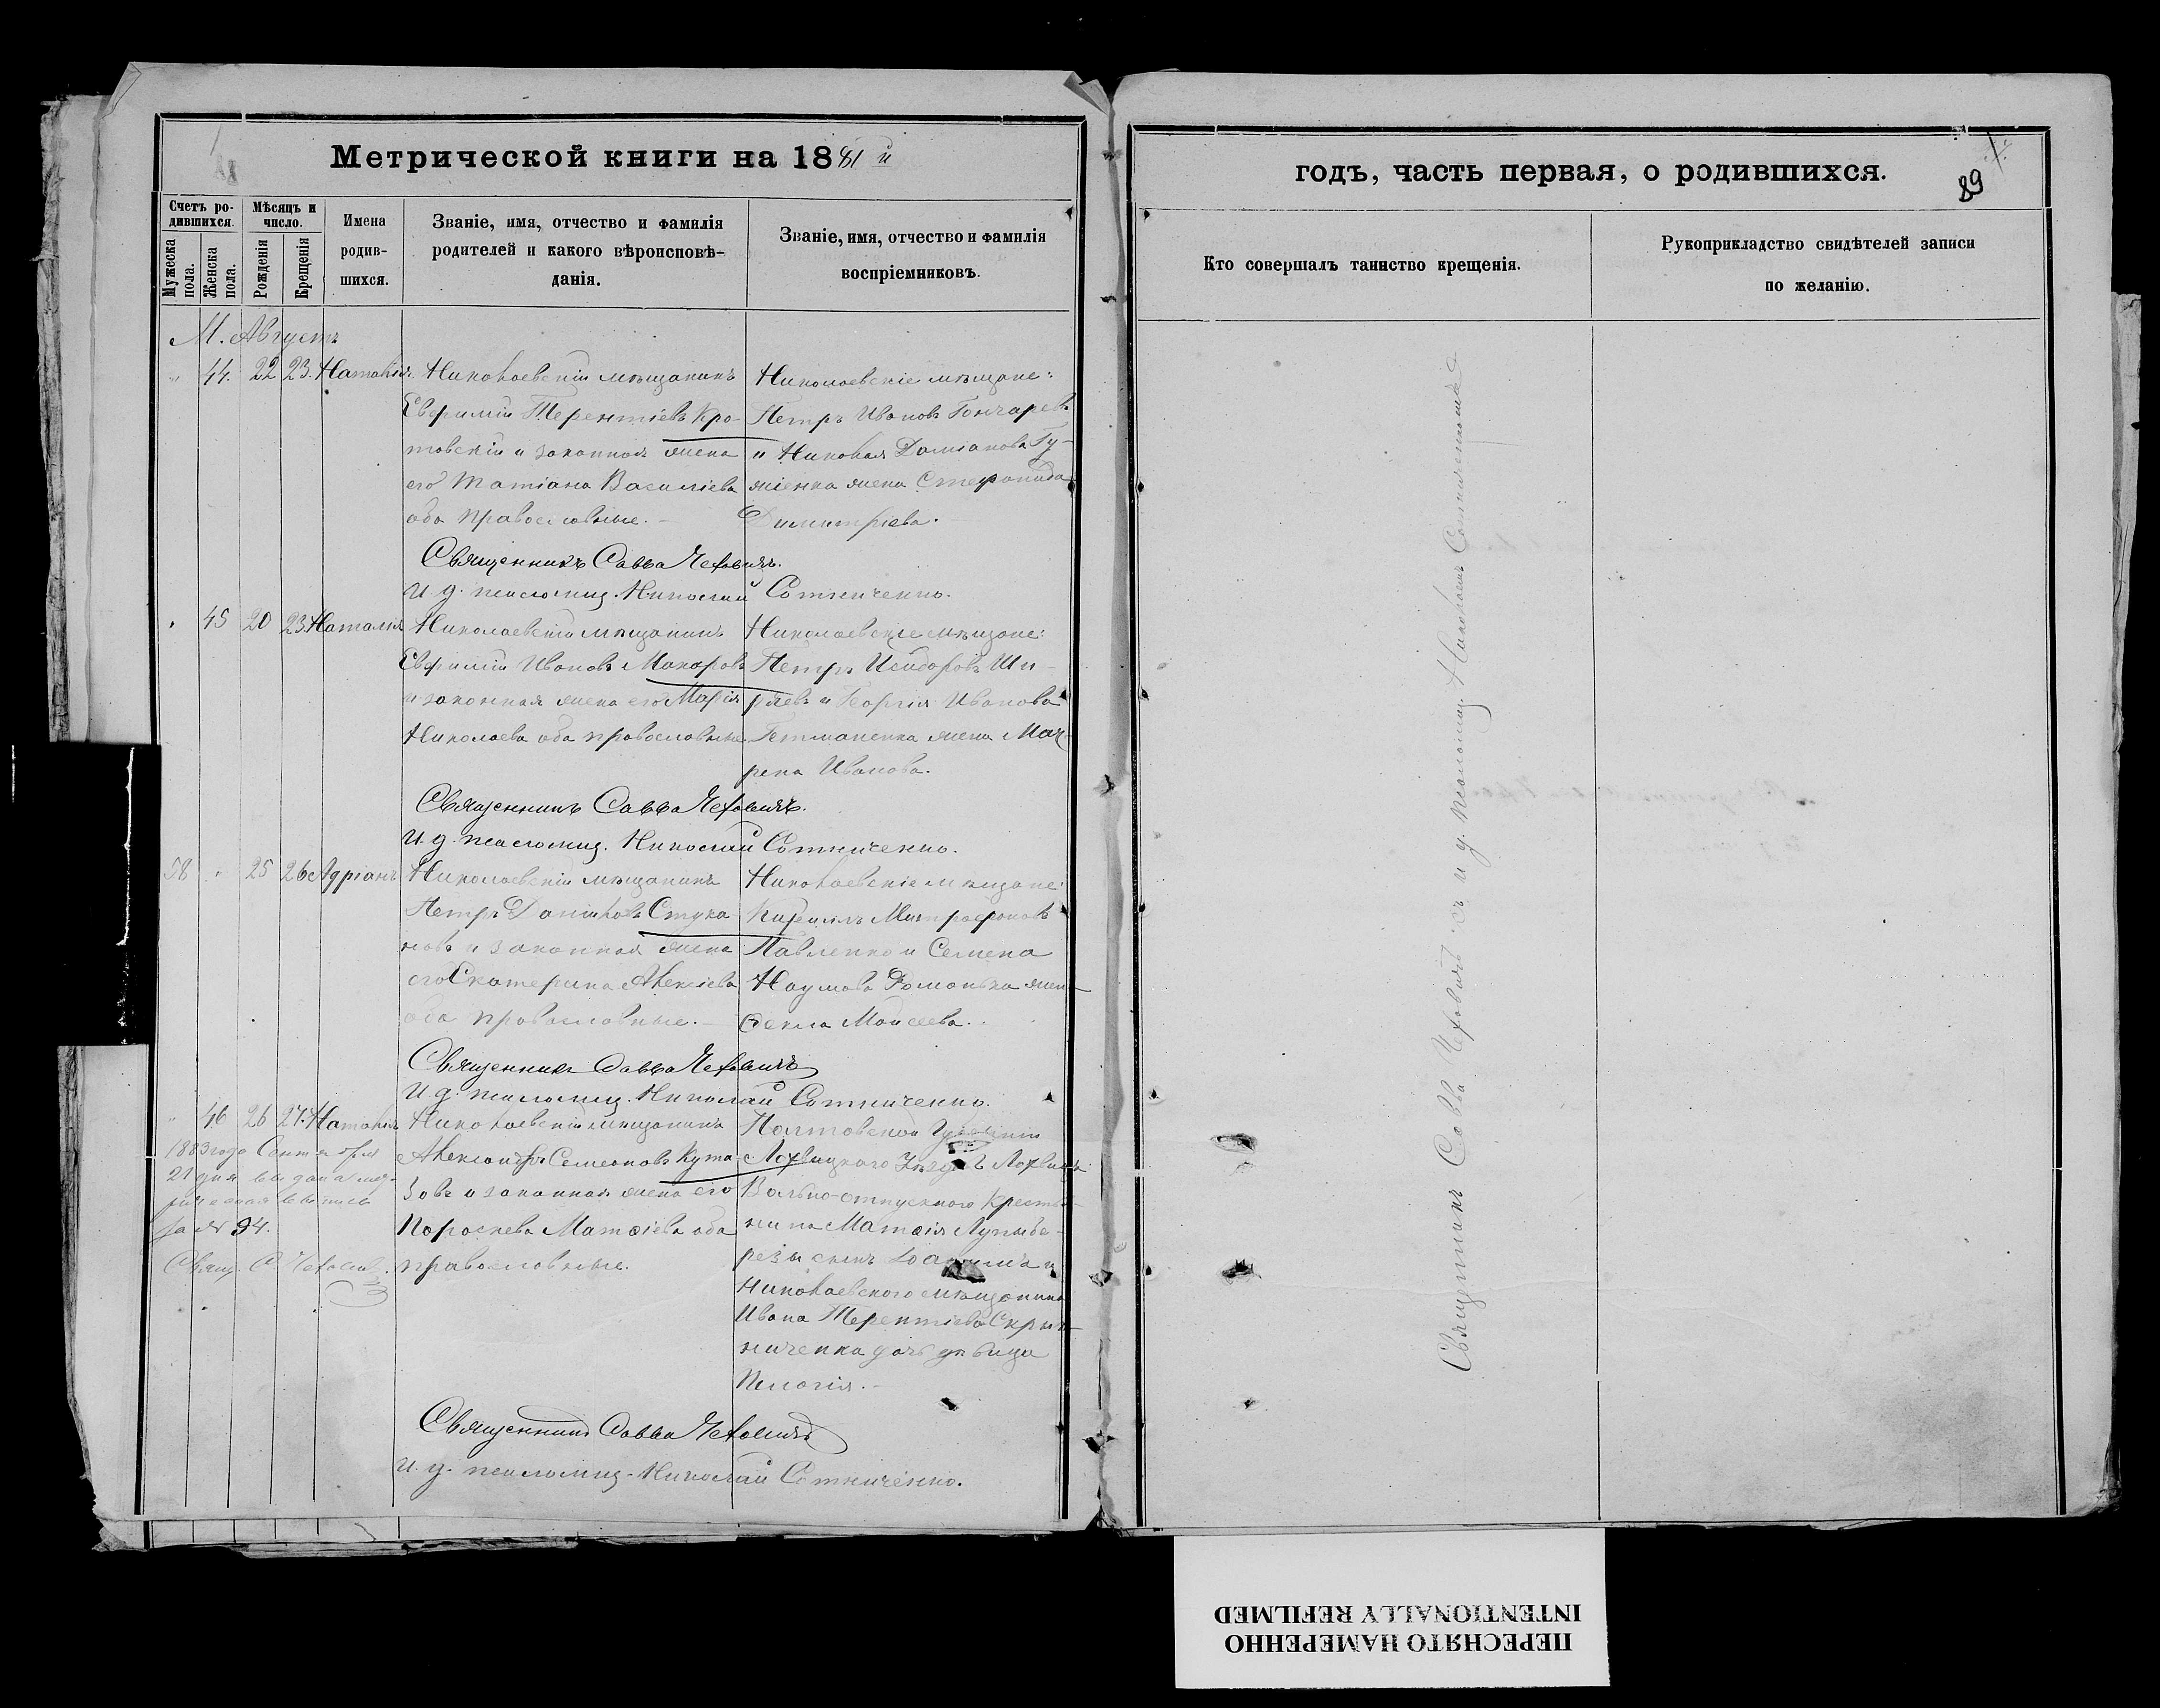 Метрической книги на 1881 й
Счетъ ро-
дившихся.
Мужеска
пола.
Женска
пола.
Мѣсяцъ и
число.
Рожденія
Крещенія
Имена
родив-
шихся.
Званіе, имя, отчество и фамилія
родителей и какого вѣроисповѣ-
данія.
Званіе, имя, отчество и фамилія
воспріемниковъ.
М. Августъ
" 44. 22 23. Наталія
Николаевскій мѣщанинъ
Евфимій Терентіевъ Кро-
товскій и законная жена
его Татіана Василіева
оба православные.
Николаевскіе мѣщане:
Петръ Ивановъ Гончаревъ
и Николая Даміанова Гу-
жіенка жена Стефанида
Димитріева.
Священникъ Савва Чеховичъ.
И. д. псаломщ. Николай Сотниченко.
" 45 20 23. Наталія
Николаевскій мѣщанинъ
Евфимій Ивановъ Макаровъ
и законная жена его Марія
Николаева оба православные
Николаевскіе мѣщане:
Петръ Исидоровъ Ши-
ряевъ и Георгія Иванова
Гетманенка жена
рена Иванова.
Священникъ Савва Чеховичъ.
И. д. псаломщ. Николай Сотниченко.
58 " 25 26 Адріанъ
Николаевскій мѣщанинъ
Петръ Даніиловъ Стука-
новъ и законная жена
его Екатерина Алексіева
оба православные.
Николаевскіе мѣщане:
Кириллъ Митрофановъ
Павленко и Семена
Наумова Романька жена
Ѳекла Моисеева.
Священникъ Савва Чеховичъ
И. д. псаломщ. Николай Сотниченко.
" 46 26 27. Наталія
1883 года Сентября
21 дня выдана мет-
рическая выпись
за № 94.
Свящ. С. Чеховичъ
Николаевскій мѣщанинъ
Александръ Семеоновъ Кута-
зовъ и законная жена его
Параскева Матѳіева оба
православные.
Полтавской Губерніи
Лохвицкого Уѣзда Лохвицы
Вольно-отпускного крестья-
нина Матѳія
резы сынъ и
Николаевского мѣщанина
Ивана Терентіева Скрын-
ниченка дочь дѣвица
Пелагія.
Священникъ Савва Чеховичъ
И. д. псаломщ. Николай Сотниченко.
годъ, часть первая, о родившихся.
89
Кто совершалъ таинство крещенія.
Рукоприкладство свидѣтелей записи
по желанію.
Священникъ Савва Чеховичъ съ и. д. псаломщ. Николаемъ Сотниченкомъ
ПЕРЕСНЯТО НАМЕРЕННО
INTENTIONALLY REFILMED